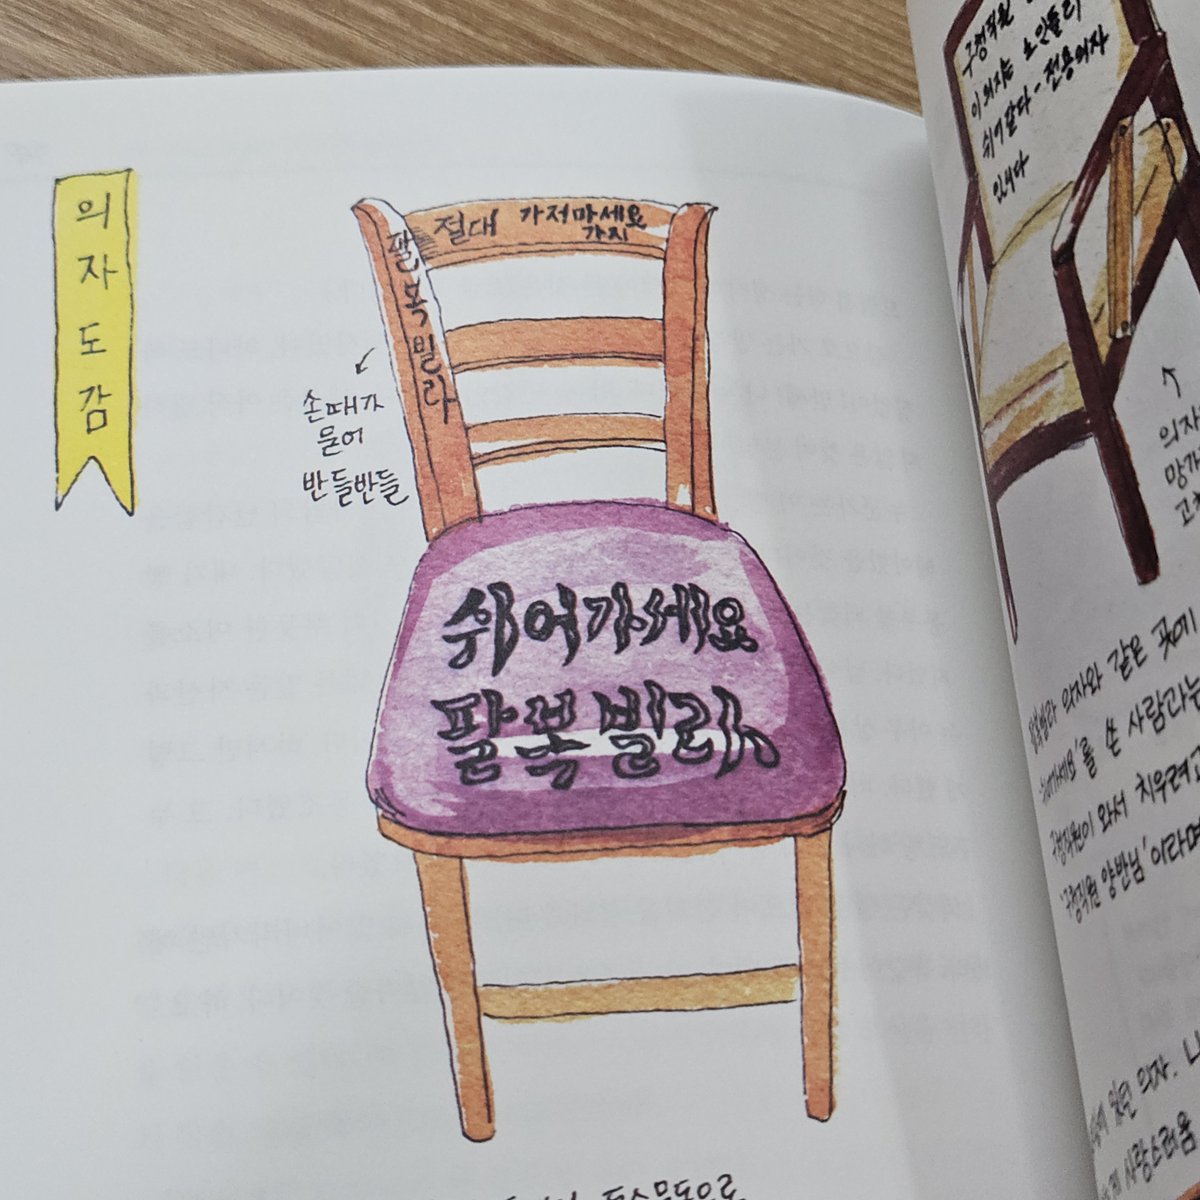 의자도감
절대 가저마세요
가지
팔복빌라
손때가
묻어
반들반들
쉬어가세요
팔복빌라
구청직원
이 의자는 노인들이
쉬어갈다-전용의자
입니다
의자
망가
의자와 같은 곳에
를 쓴 사람과는
구청직원이 와서 치우려
'구청직원 양반님'이라며
있던 의자.
사랑스러움